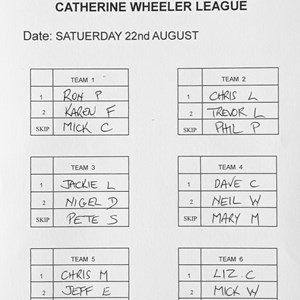 CATHERINE WHEELER LEAGUE
Date: SATUERDAY 22nd AUGUST
TEAM 1
1 RON P
2 KAREN F
SKIP MICK C
TEAM 2
1 CHRIS L
2 TREVOR L
SKIP PHIL P
TEAM 3
1 JACKIE L
2 NIGEL D
SKIP PETE S
TEAM 4
1 DAVE C
2 NEIL W
SKIP MARY M
TEAM 5
1 CHRIS M
2 JEFF E
TEAM 6
1 LIZ C
2 MICK W